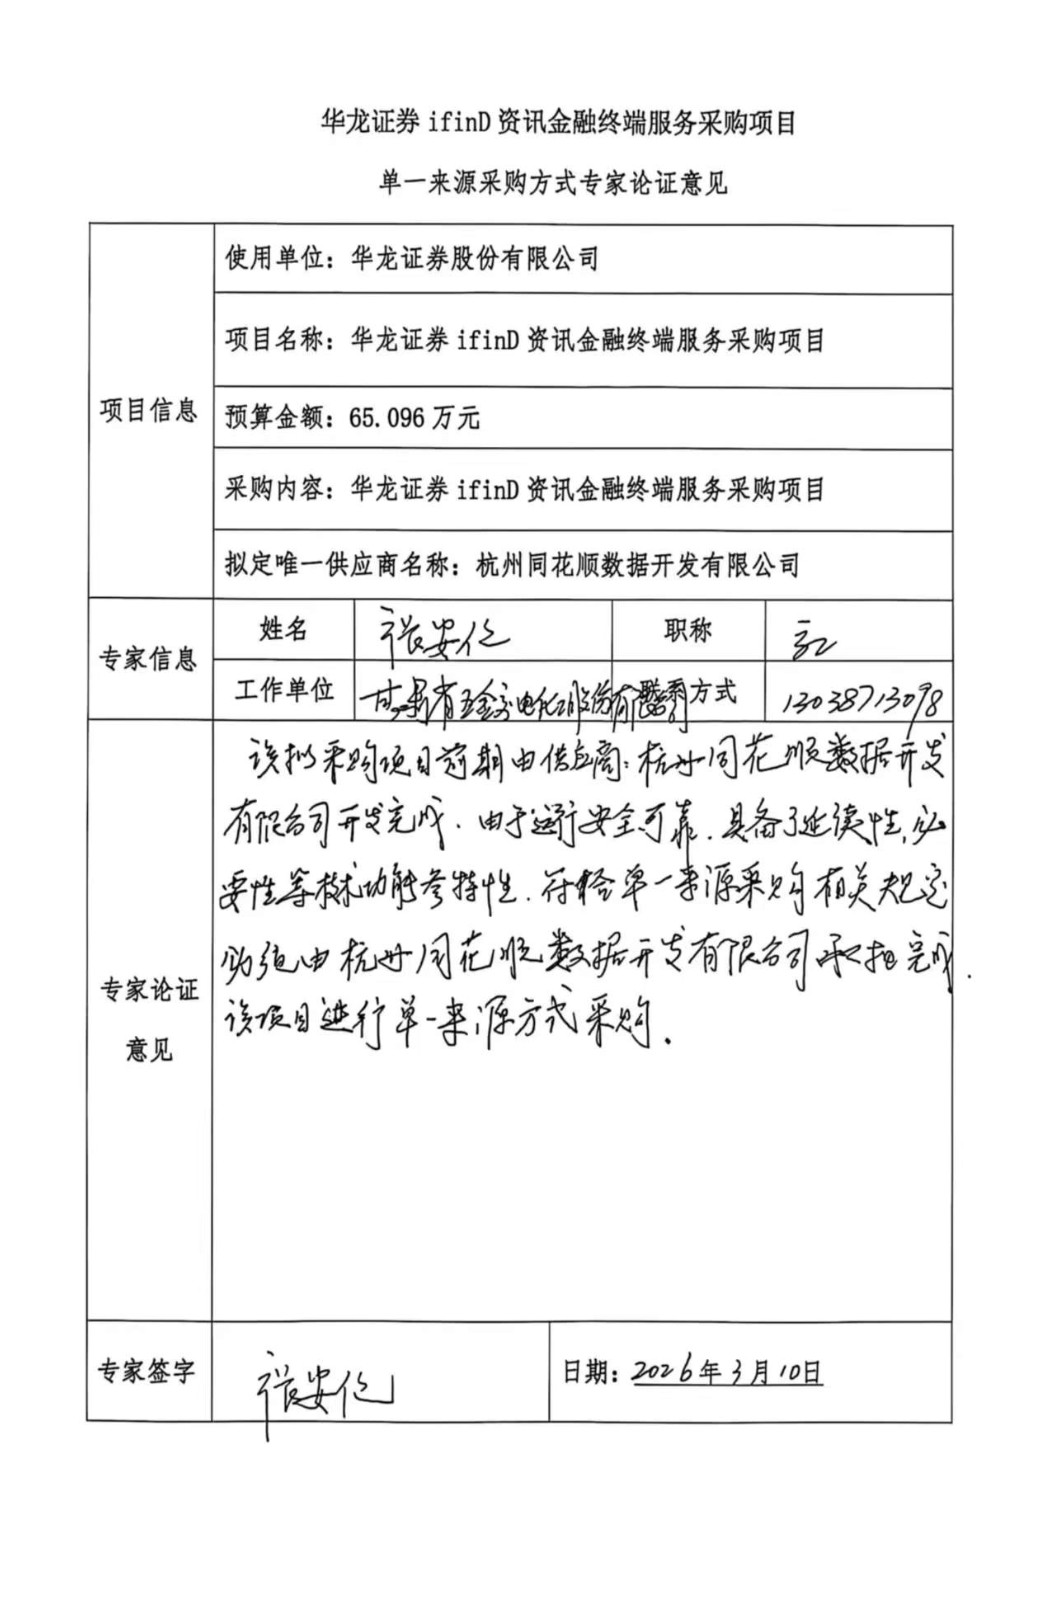 华龙证券 ifinD 资讯金融终端服务采购项目
单一来源采购方式专家论证意见
项目信息
使用单位：华龙证券股份有限公司
项目名称：华龙证券 ifinD 资讯金融终端服务采购项目
预算金额：65.096 万元
采购内容：华龙证券 ifinD 资讯金融终端服务采购项目
拟定唯一供应商名称：杭州同花顺数据开发有限公司
专家信息
姓名 安 职称
工作单位 甘肃省五金交电化工股份有限公司 方式 13038713098
专家论证
意见
该拟采购项目前期由供应商：杭州同花顺数据开发
有限公司开发完成．由于运行安全可靠．具备了延续性，必
要性等技术功能参特性．符合单一来源采购相关规定
必须由杭州同花顺数据开发有限公司承担完成．
该项目进行单一来源方式采购．
专家签字 安
日期：2026年3月10日